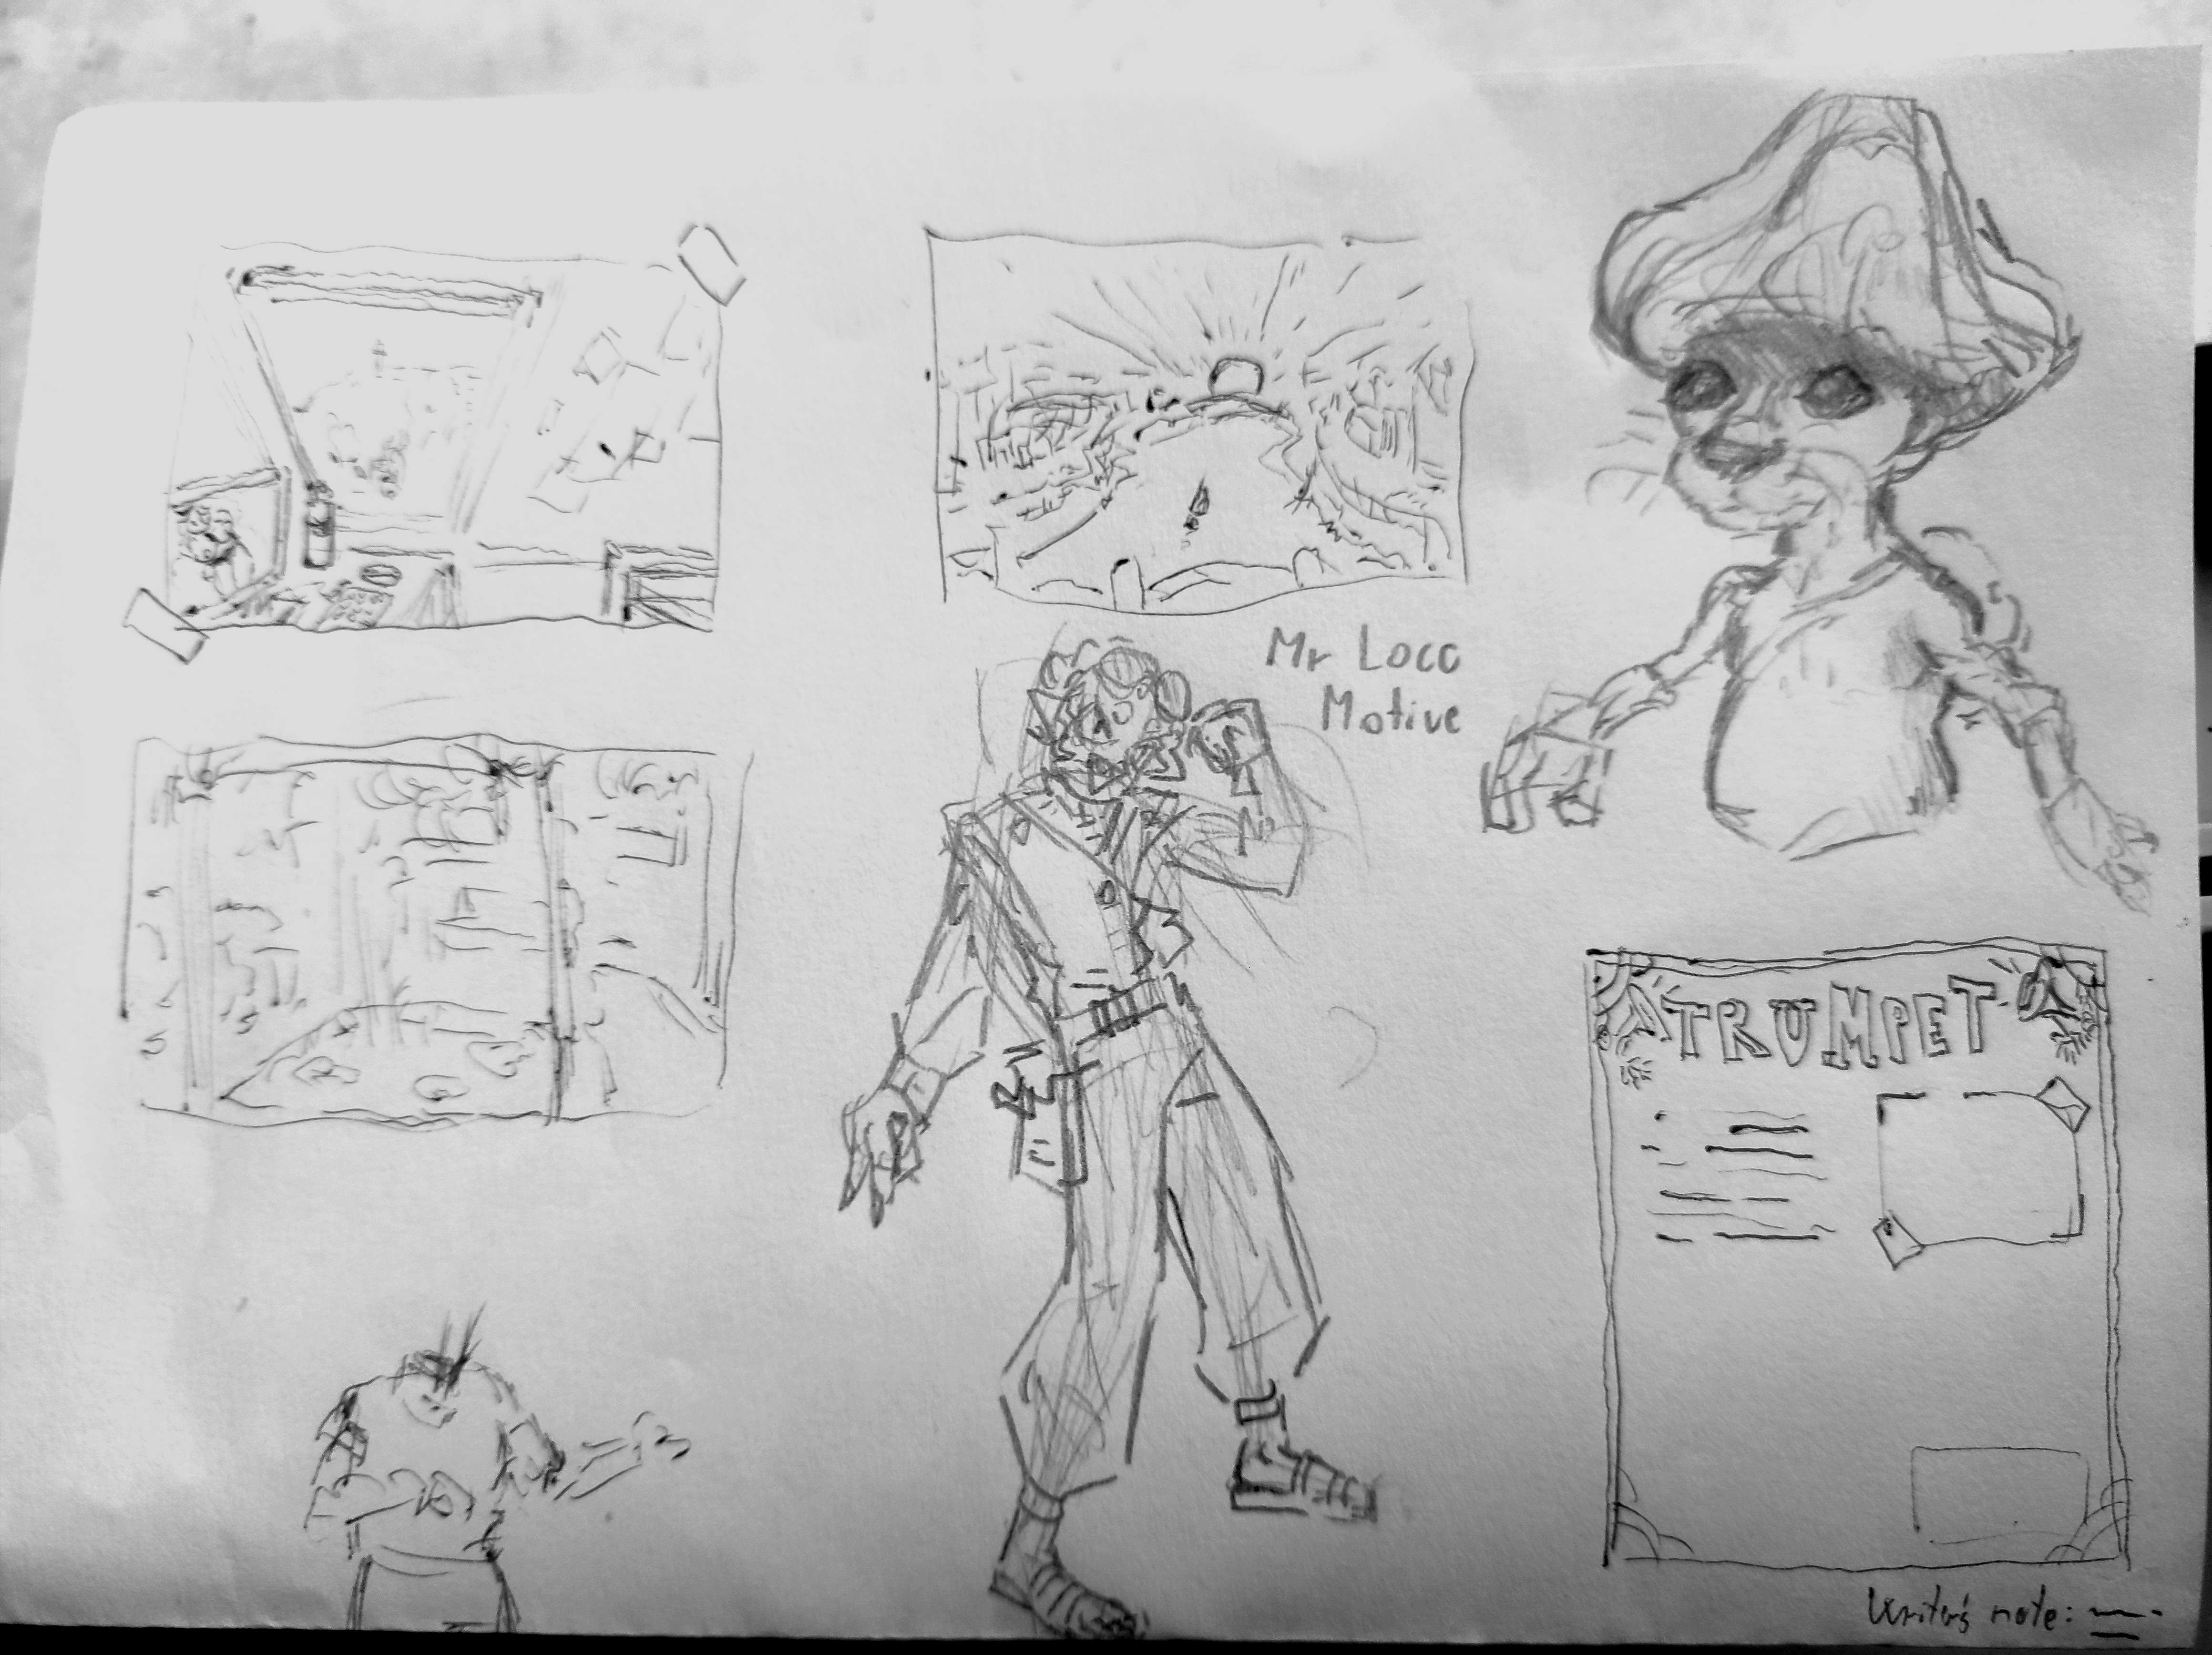 Mr Loco
Motive
TRUMPET
Writer's note: